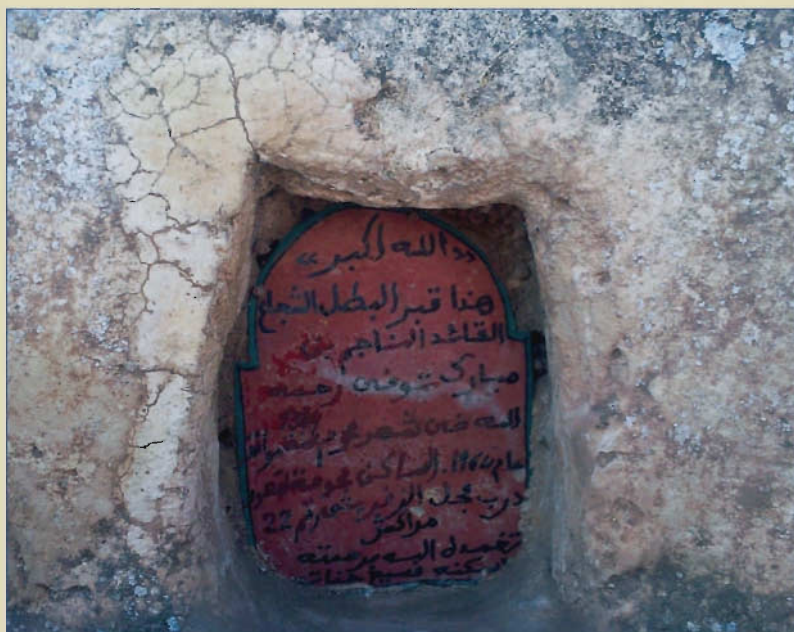 ((الله اكبر))
هذا قبر البطل الشجاع
القائد الناجم بن
مبارك توفى رحمه
الله في شهر محرم
عام 1964. الساكن بحومة القصور
درب رقم 22
مراكش
تغمده الله برحمته
واسكنه فسيح جناته